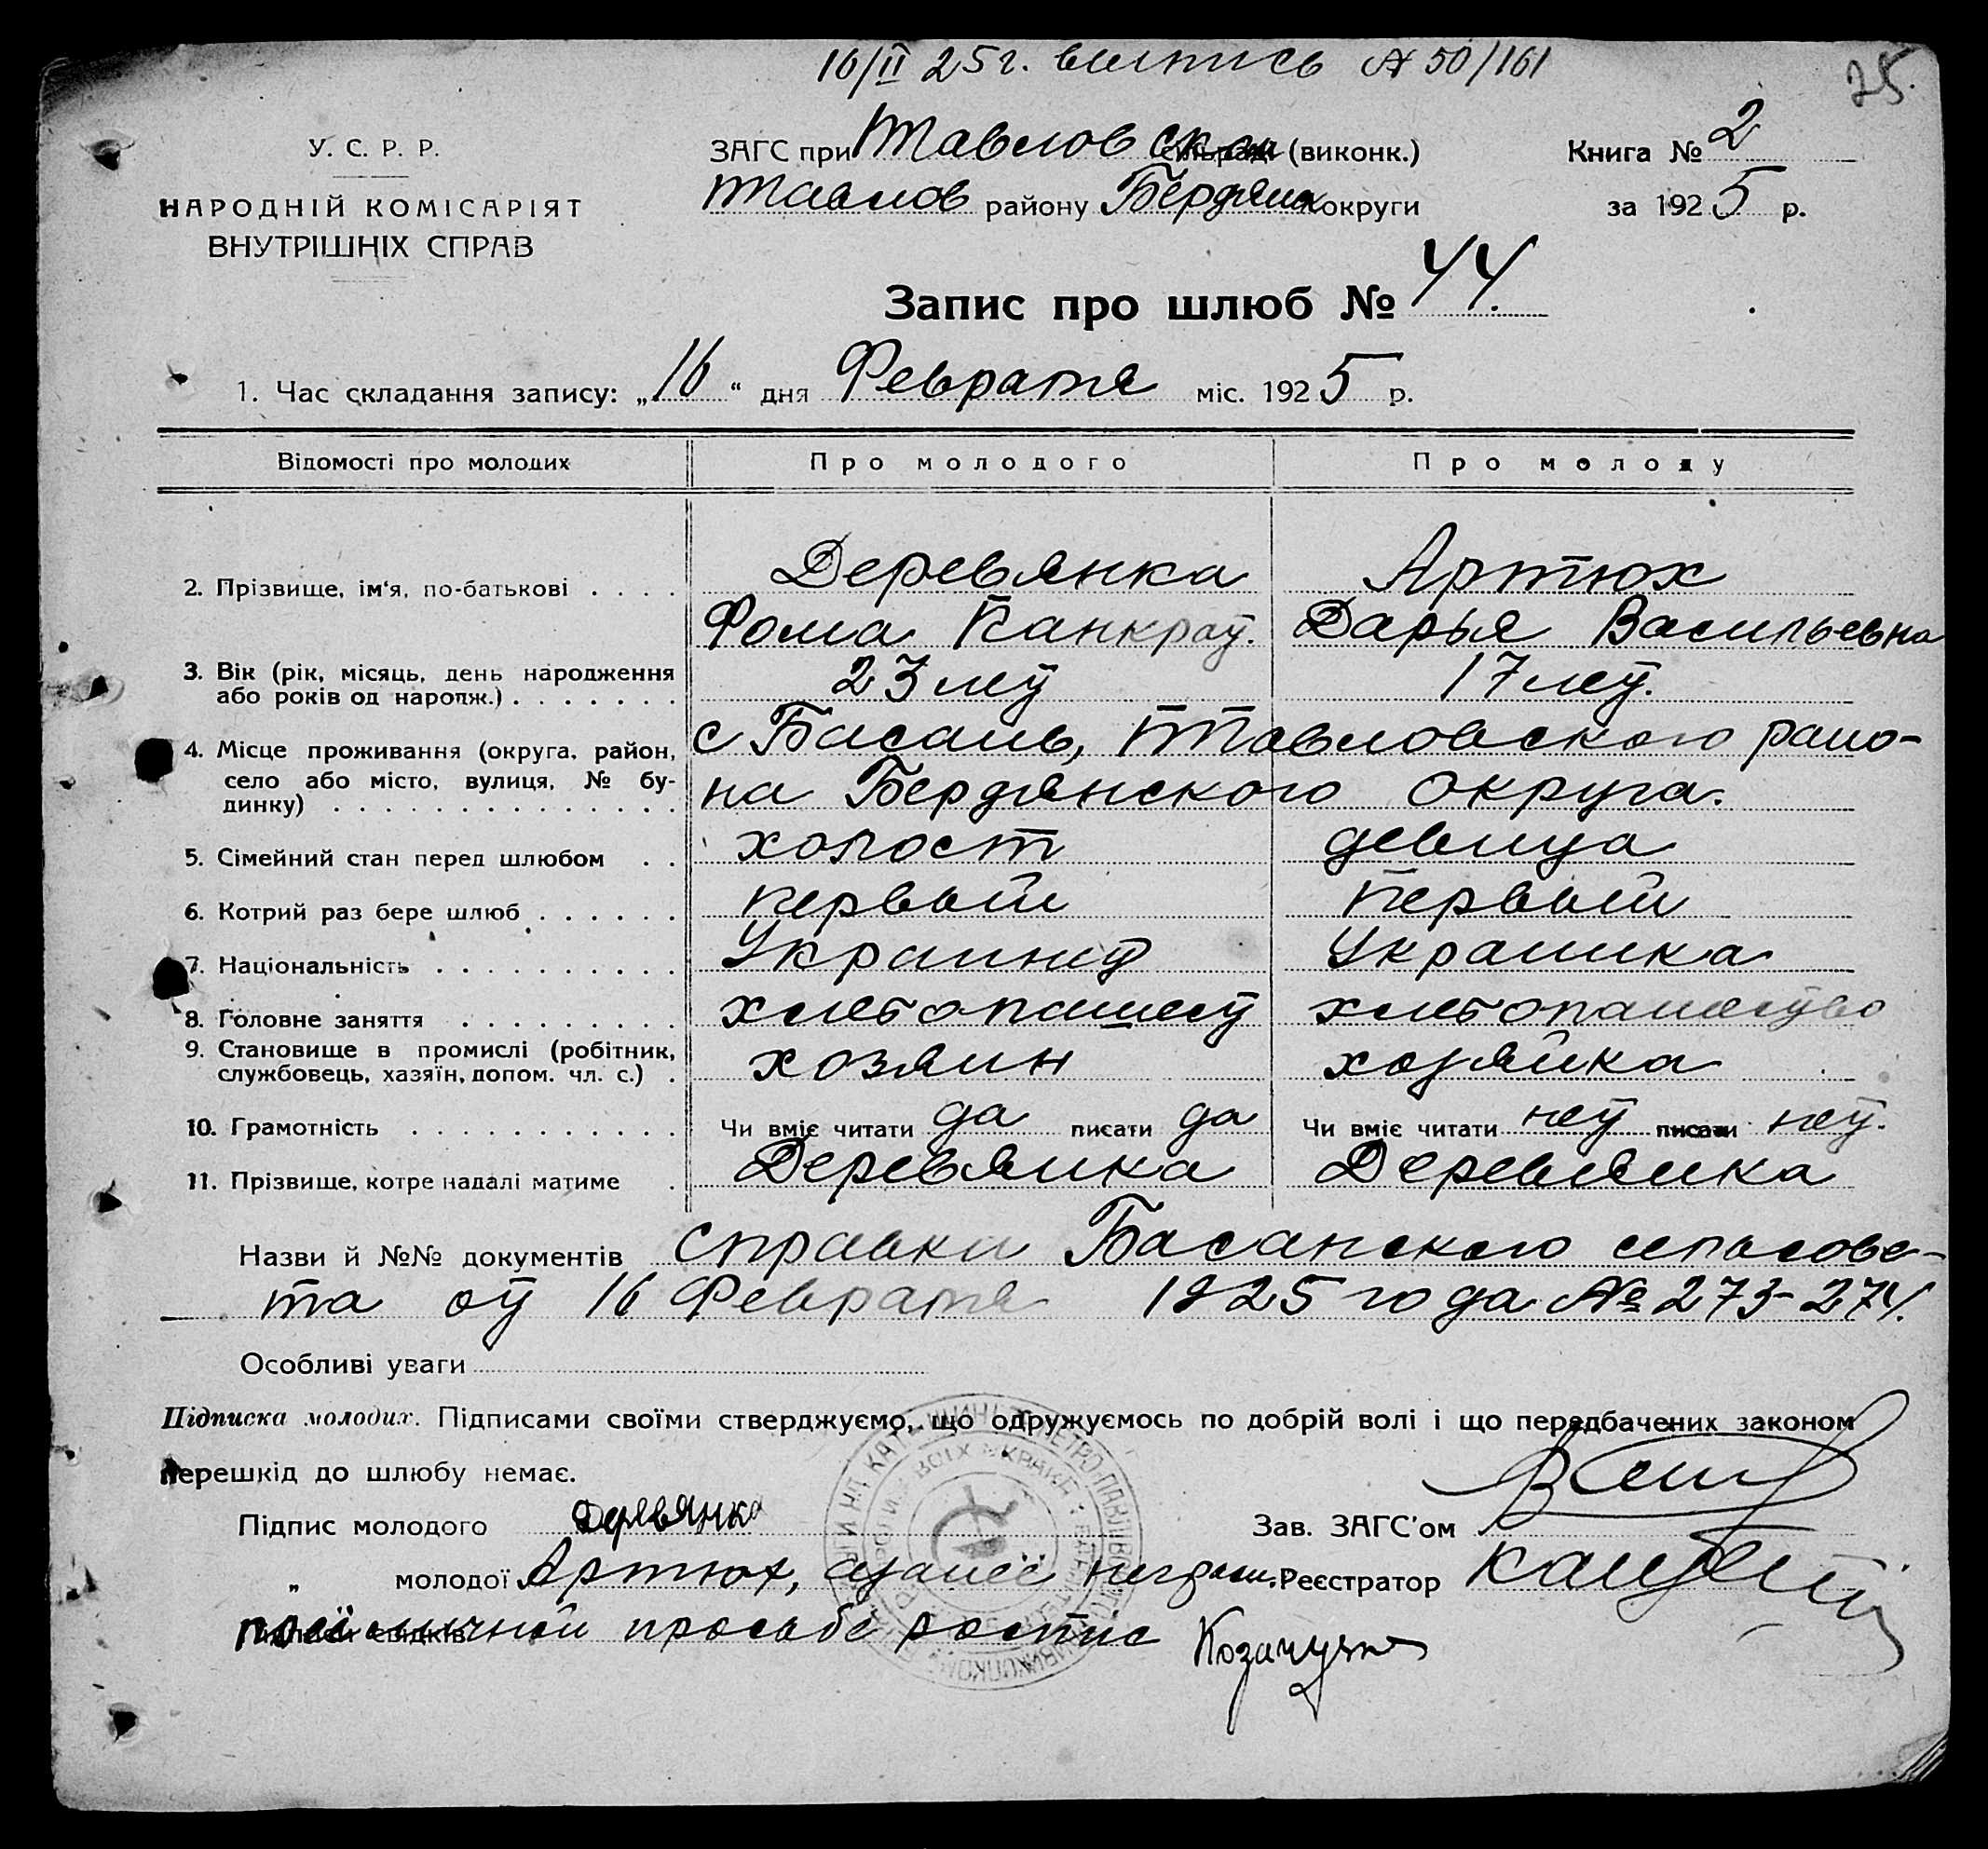 16/II 25 г. выпись № 50/161
25.
У. С. Р. Р.
НАРОДНІЙ КОМІСАРІЯТ
ВНУТРІШНІХ СПРАВ
ЗАГС при Павловском (виконк.)
Павлов району Бердянск округи
Книга № 2
за 1925 р.
Запис про шлюб № 44.
1. Час складання запису: „16“ дня Февраля міс. 1925 р.
Відомості про молодих Про молодого Про молоду
2. Прізвище, ім'я, по-батькові . . . . Деревянка Артюх
Фома Панкрат. Дарья Васильевна
3. Вік (рік, місяць, день народження 23 лет 17 лет.
або років од народж.) . . . . . . .
4. Місце проживання (округа, район, с Басань, Павловского райо-
село або місто, вулиця, № бу-
динку) . . . . . . . . . . . . . . на Бердянского округа.
5. Сімейний стан перед шлюбом . . холост девица
6. Котрий раз бере шлюб . . . . . . первый первый
7. Національність . . . . . . . . . . Украинец Украинка
8. Головне заняття . . . . . . . . . хлебопашест хлебопашество
9. Становище в промислі (робітник, хозяин хозяйка
службовець, хазяїн, допом. чл. с.) .
10. Грамотність . . . . . . . . . . . Чи вміє читати да писати да Чи вміє читати нет писати нет.
11. Прізвище, котре надалі матиме . Деревянка Деревянка
Назви й №№ документів справки Басанского сельсове-
та от 16 Февраля 1925 года № 273-274.
Особливі уваги
Підписка молодих. Підписами своїми стверджуємо, що одружуємось по добрій волі і що передбачених законом
перешкід до шлюбу немає.
Підпис молодого Деревянка Зав. ЗАГС'ом
„ молодої Артюх, а за нее неграм. Реєстратор
по её личной просьбе роспис